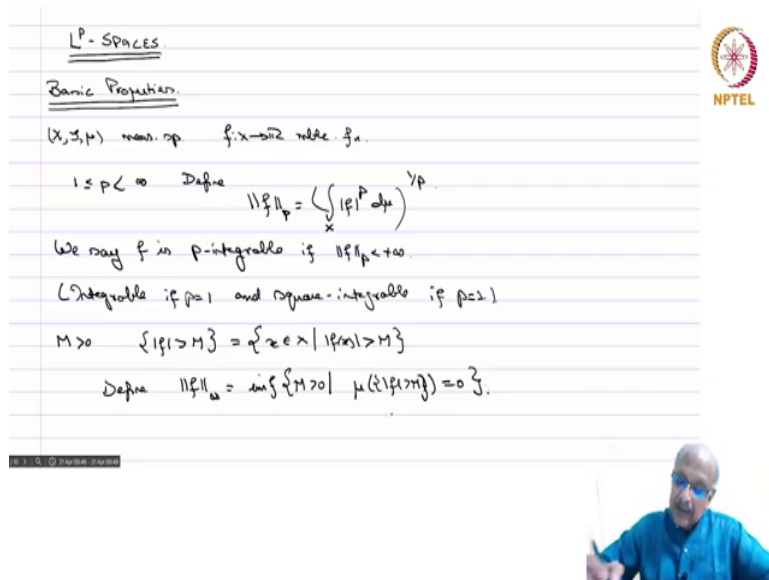 L^p - SPACES.
Basic Properties.
(X, S, μ) meas. sp. f: X→ℝ mble. fn.
1 ≤ p < ∞ Define
‖f‖_p = (∫_X |f|^p dμ)^{1/p}.
We say f is p-integrable if ‖f‖_p < +∞.
(Integrable if p=1 and square-integrable if p=2)
M>0 {|f| > M} = {x ∈ X | |f(x)| > M}
Define ‖f‖_∞ = inf {M>0 | μ({|f|>M}) = 0}.
NPTEL